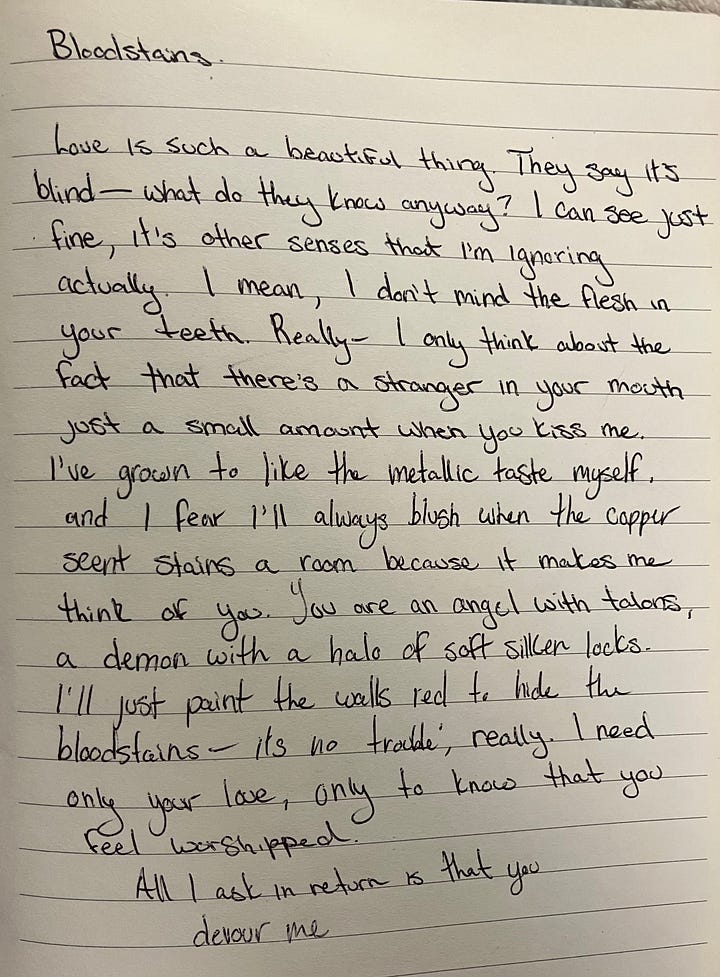 Bloodstains.
Love is such a beautiful thing. They say it's
blind — what do they know anyway? I can see just
fine, it's other senses that I'm ignoring
actually. I mean, I don't mind the flesh in
your teeth. Really - I only think about the
fact that there's a stranger in your mouth
just a small amount when you kiss me.
I've grown to like the metallic taste myself,
and I fear I'll always blush when the copper
scent stains a room because it makes me
think of you. You are an angel with talons,
a demon with a halo of soft silken locks.
I'll just paint the walls red to hide the
bloodstains — it's no trouble, really. I need
only your love, only to know that you
feel worshipped.
All I ask in return is that you
devour me